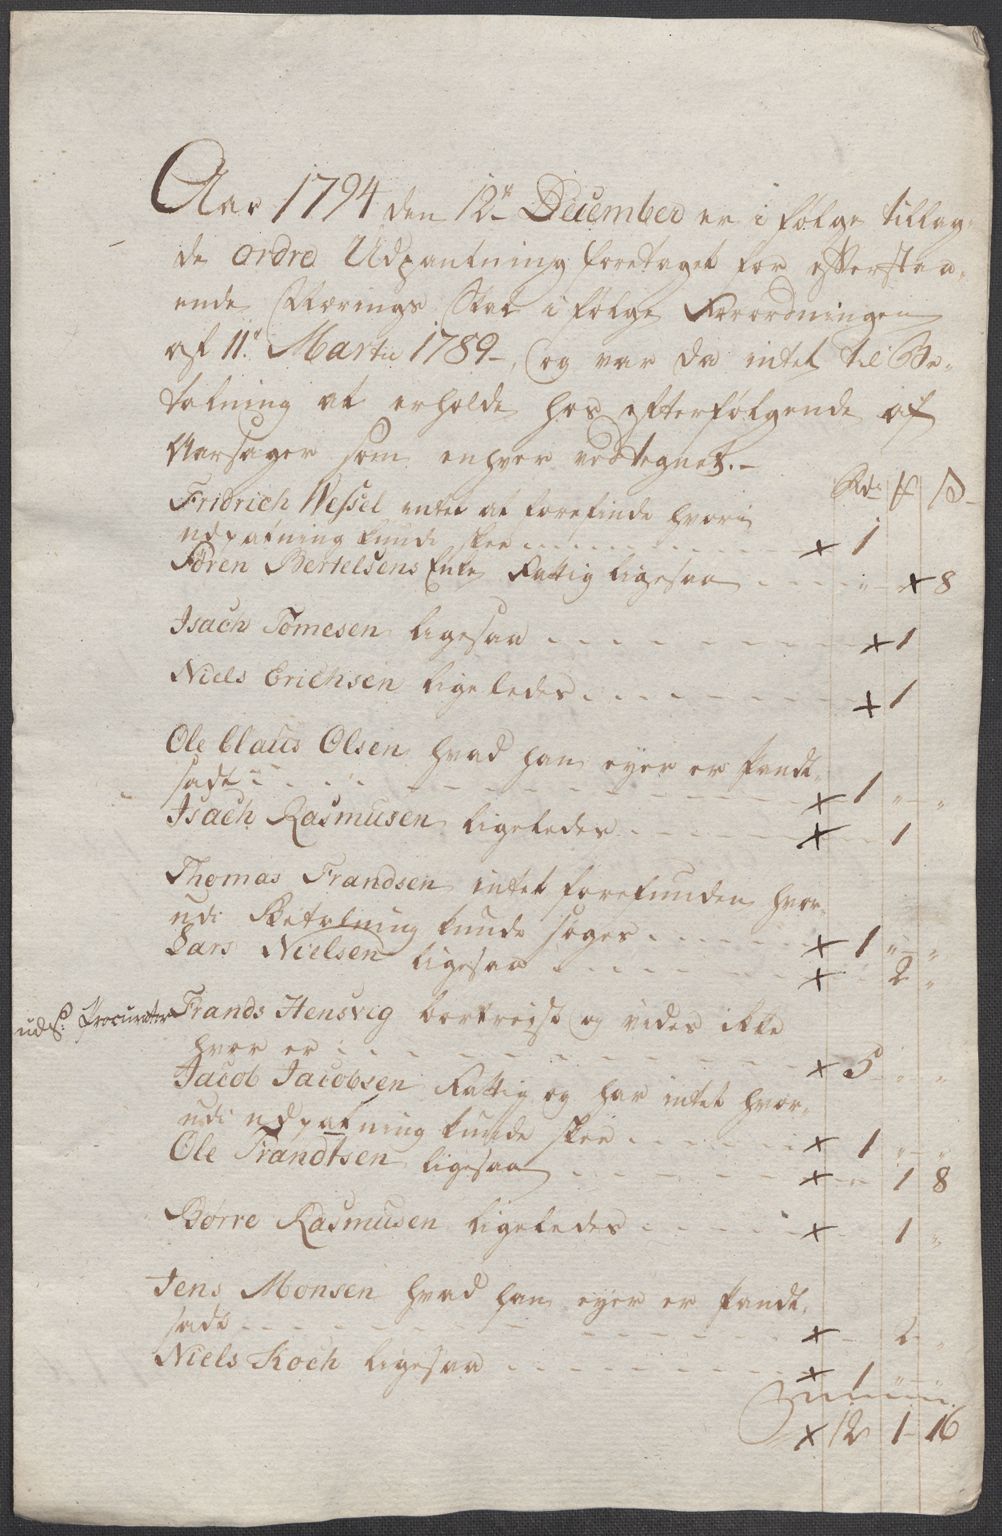 Aar 1794 den 12te December er i følge tillag-
de ordre Udpantning foretaget for efterstaa-
ende Nærings Skat i følge Forordningen
af 11te Martii 1789 -, og var da intet til Be-
talning at erholde hos efterfølgende af
Aarsager som enhver vedtegnet. -
Rd. # S
Fridrich Wessel intet at forefinde hvori
udpatning kunde skee ... x 1
Søren Bertelsens Enke Fattig ligesaa ... " x 8
Isach Tomesen ligesaa ... x 1
Niels Erichsen ligeledes ... x 1
Ole Claus Olsen hvad han eyer er Pandt-
sadt ... x 1 " "
Isach Rasmusen ligeledes ... x 1
Thomas Frandsen intet forefunden hvor-
udi Betalning kunde søges ... x 1 " "
Lars Nielsen ligesaa ... x 2 "
ud S: Procurator
Frands Hensvig bortreist og vides ikke
hvor er ... x 5 " "
Jacob Jacobsen Fattig og har intet hvor-
udi udpatning kunde skee ... x 1 " "
Ole Frandtsen ligesaa ... x 1 8
Børre Rasmusen ligeledes ... x 1 "
Jens Monsen hvad han eyer er Pandt-
sadt ... x 2 "
Niels Koch ligesaa ... x 1 " "
Summa x 12 1 16